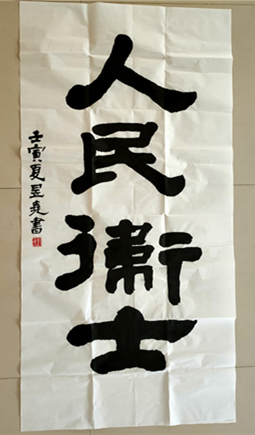 人民衛士
壬寅夏昱堯書